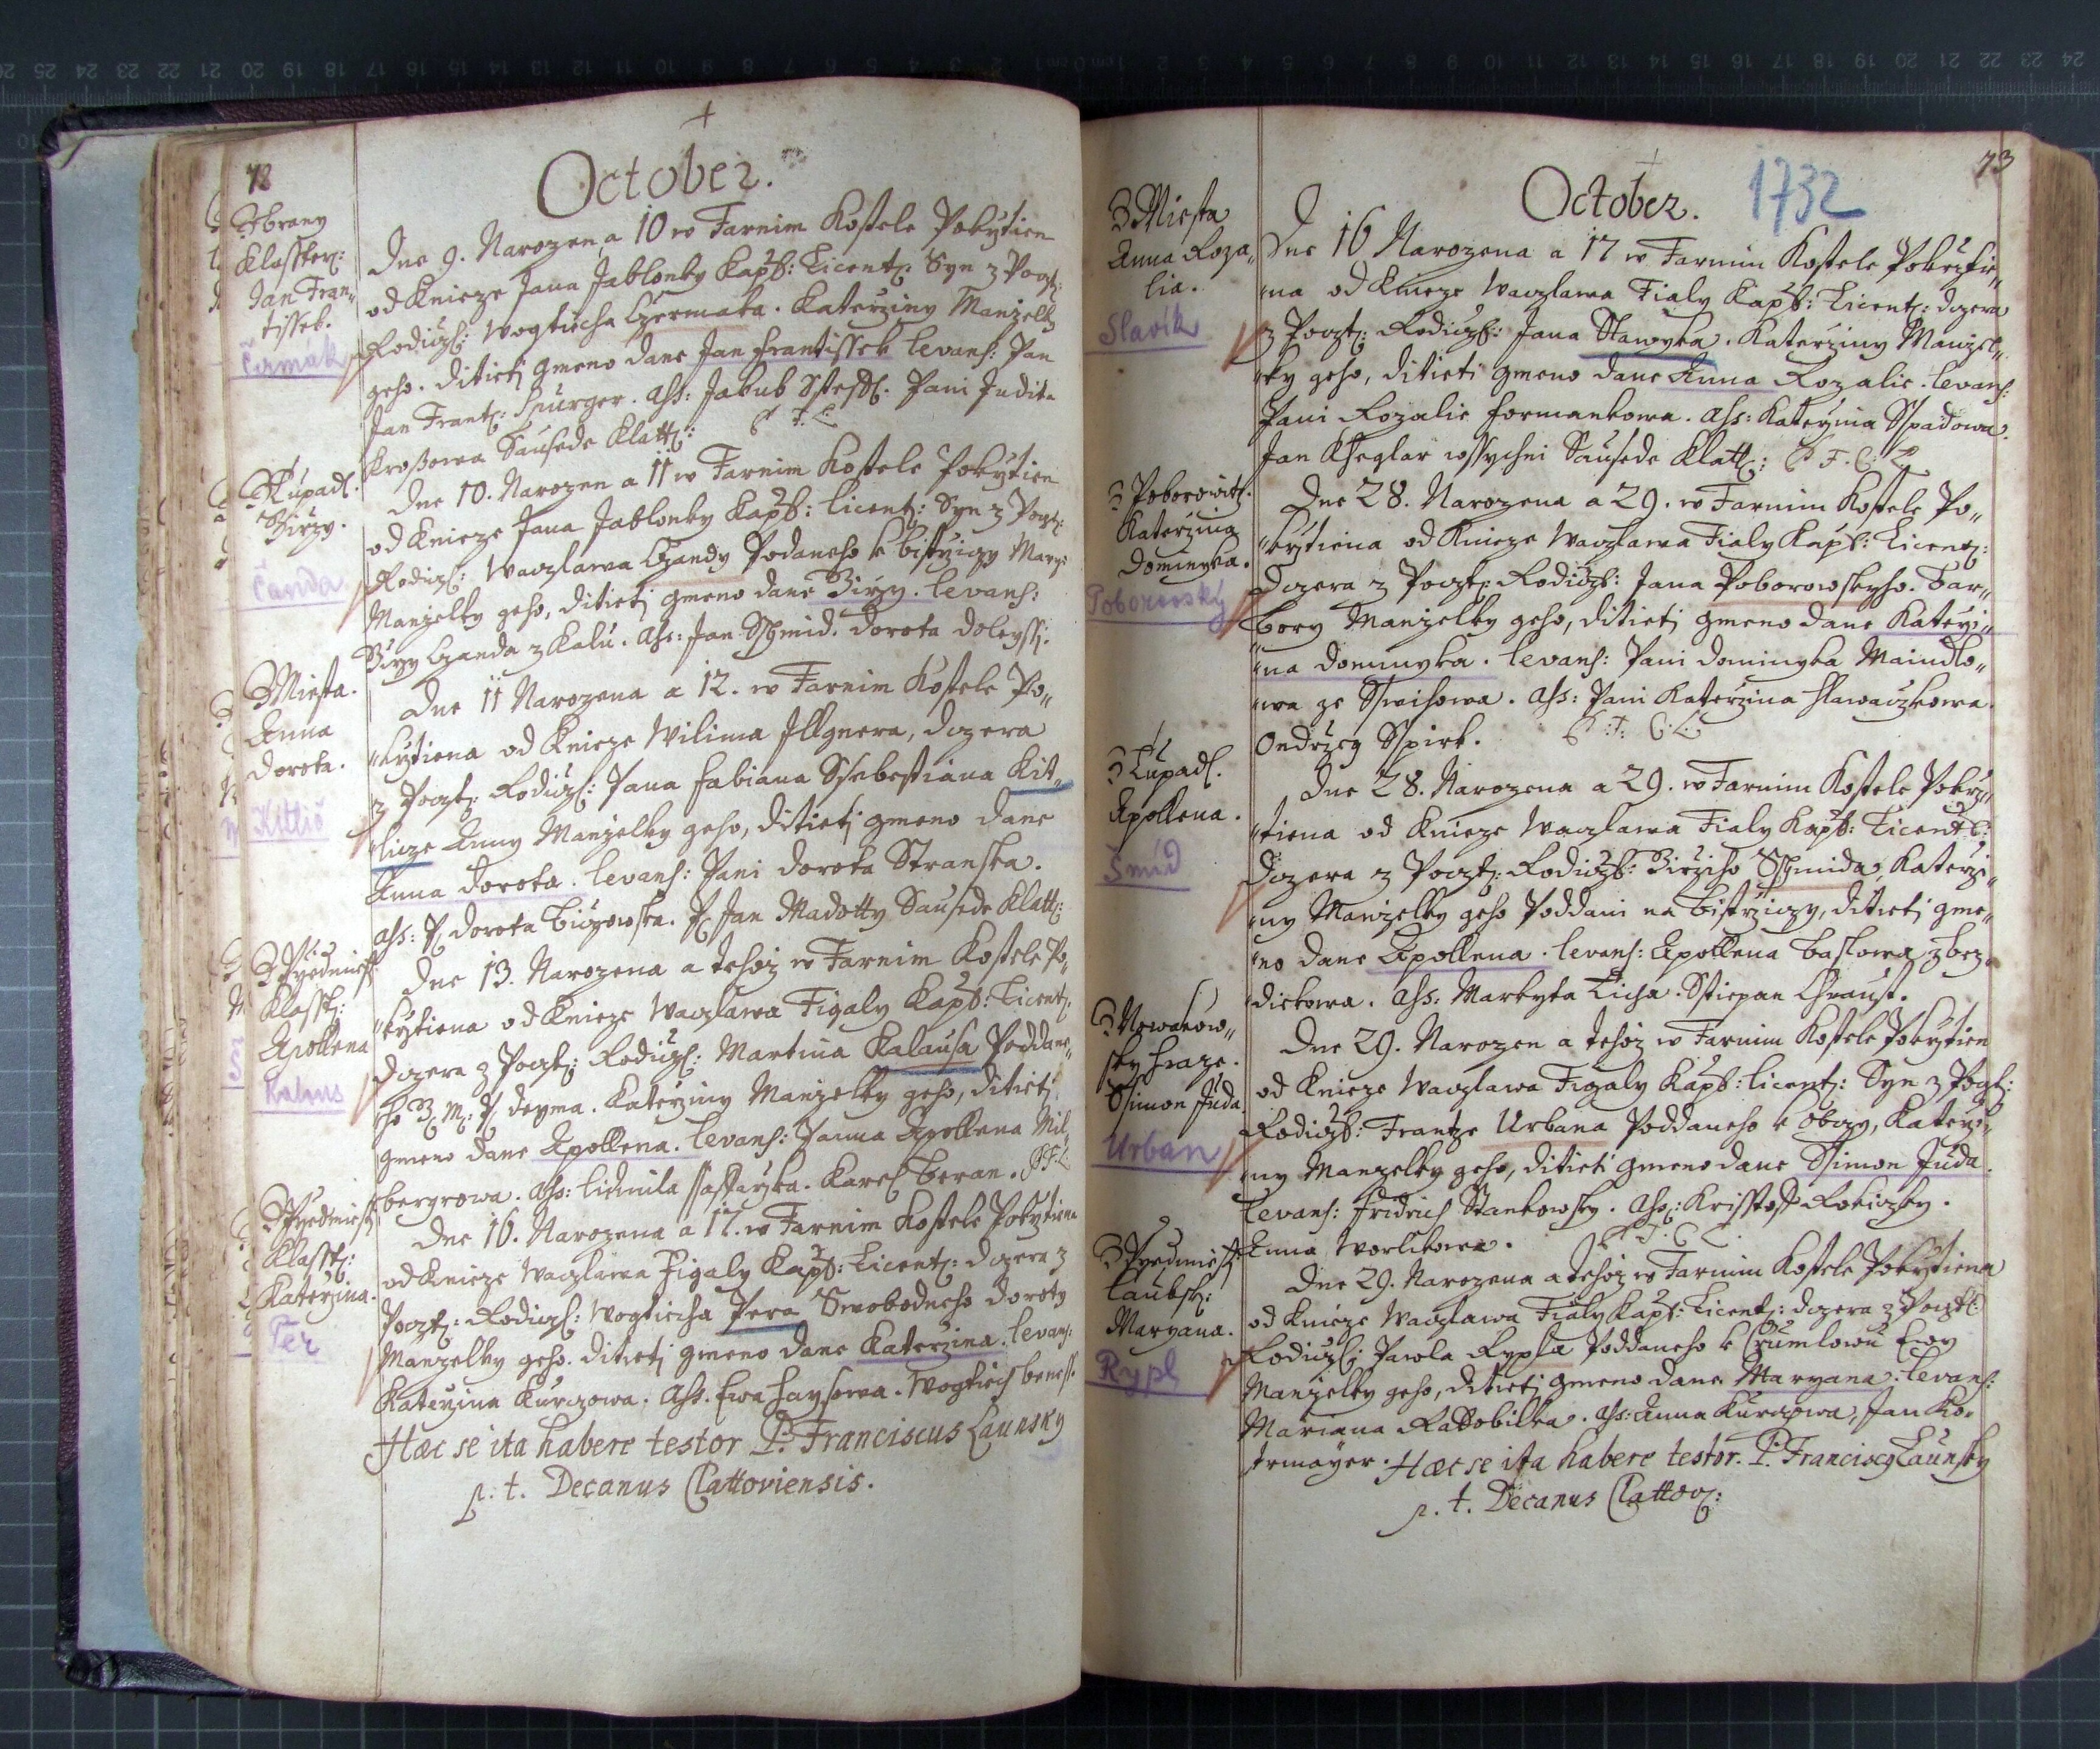 72
October.
Z brany
Klasster:
Jan Fran„
tissek.
Čermák
Dne 9. Narozen a 10 w Farnim Kostele Pokrztien
od Knieze Jana Jablonky Kapl: Licent: Syn z Poczt:
Rodicz: Wogtiecha Czermaka. Katerziny Manzelky
geho. ditieti gmeno dane Jan Frantissek levans: Pan
Jan Frant: Spurger. Ass: Jakub Pani Judita
Krossowa Sausede Klatt:
Z Lupad.
Girzy.
Čanda
Dne 10. Narozen a 11 w Farnim Kostele Pokrztien
od Knieze Jana Jablonky Kapl: licent: Syn z Poczt:
Rodicz: Waczlawa Czandy Podaneho k bistrziczy Mary:
Manzelky geho, ditieti gmeno dane Girzy. levans:
Girzy Czanda z Kalu. Ass: Jan Sschmid. dorota doleyssi.
Z Miesta.
Anna
dorota.
Kitlic
Dne 11 Narozena a 12. w Farnim Kostele Po„
„krztiena od Knieze Wilima Illgnera, dczera
z Poczt: Rodicz: Pana Fabiana Ssebestiana Kit„
„licze Anny Manzelky geho, ditieti gmeno dane
Anna dorota. levans: Pani dorota Stranska.
Ass: P: dorota Biczowska. P: Jan Madotty Sausede Klatt:
Z Przedmiest:
Klasst:
Apollena
Kalaus
Dne 13. Narozena a tehoz w Farnim Kostele Po„
„krztiena od Knieze Waczlawa Figaly Kapl: Licent:
dczera z Poczt: Rodicz: Martina Kalausa Poddane„
ho Z: M: P: deyma. Katerziny Manzelky geho, ditieti
gmeno dane Apollena. levans: Panna Apollena Mil„
bergrowa. Ass: lidmila ssaffarzka. Karel beran.
Z Przedmiest:
Klasst:
Katerzina.
Per
Dne 16. Narozena a 17. w Farnim Kostele Pokrztiena
od Knieze Waczlawa Figaly Kapl: Licent: dczera z
Poczt: Rodicz: Wogtiecha Pera Swobodneho doroty
Manzelky geho. ditieti gmeno dane Katerzina. levans:
Katerzina Kurczowa. Ass. Ewa Haysowa. Wogtiech beness.
Hæc se ita habere testor P. Franciscus Launsky
p. t. Decanus Clattoviensis.
73
October. 1732
Z Miesta
Anna Roza„
lia.
Slavík
Dne 16 Narozena a 17 w Farnim Kostele Pokrztie„
„na od Knieze Waczlawa Fialy Kapl: Licent: dczera
z Poczt: Rodicz: Jana Slawyka. Katerziny Manzel„
„ky geho, ditieti gmeno dane Anna Rozalie. levans:
Pani Rozalie Formankowa. Ass: Katerzina Sspadowa.
Jan Kheglar wssychni Sausede Klatt:
Z Poborowitz.
Katerzina
dominyka.
Poborovský
Dne 28. Narozena a 29. w Farnim Kostele Po„
„krztiena od Knieze Waczlawa Fialy Kapl: Licent:
dczera z Poczt: Rodicz: Jana Poborowskyho. Bar„
bory Manzelky geho, ditieti gmeno dane Katerzi„
„na dominyka. levans: Pani dominyka Maindlo„
„wa ze Sswihowa. Ass: Pani Katerzina Hlawaczkowa.
Ondrzeg Sspirk.
Z Lupad.
Apollena.
Šmíd
Dne 28. Narozena a 29. w Farnim Kostele Pokrz„
„tiena od Knieze Waczlawa Fialy Kapl: Licent:
dczera z Poczt: Rodicz: Girziho Sschmida, Katerzi„
„ny Manzelky geho Poddani na bistrziczy, ditieti gme„
„no dane Apollena. levans: Apollena baslowa z bez„
„diekowa. Ass: Markyta Ticha. Sstiepan Chraust.
Z Nowakow„
sky Hraze.
Ssimon Juda
Urban
Dne 29. Narozen a tehoz w Farnim Kostele Pokrztien
od Knieze Waczlawa Figaly Kapl: licent: Syn z Poczt:
Rodicz: Frantze Urbana Poddaneho k obczy, Katerzi„
„ny Manzelky geho, ditieti gmeno dane Ssimon Juda.
levans: Fridrich Stankowsky. Ass: Krisstoff Rokiczky.
Anna Worlikowa.
Z Przedmiest:
Laubsk:
Maryana.
Rypl
Dne 29. Narozena a tehoz w Farnim Kostele Pokrztiena
od Knieze Waczlawa Fialy Kapl: Licent: dczera z Poczt:
Rodicz: Pawla Rypla Poddaneho k Crumlowu Ewy
Manzelky geho, ditieti gmeno dane Maryana. levans:
Mariana Kattobilka. Ass: Anna Kurczowa, Jan Ko„
strmayer. Hæc se ita habere testor. P. Franciscg Launsky
p. t. Decanus Clattov: